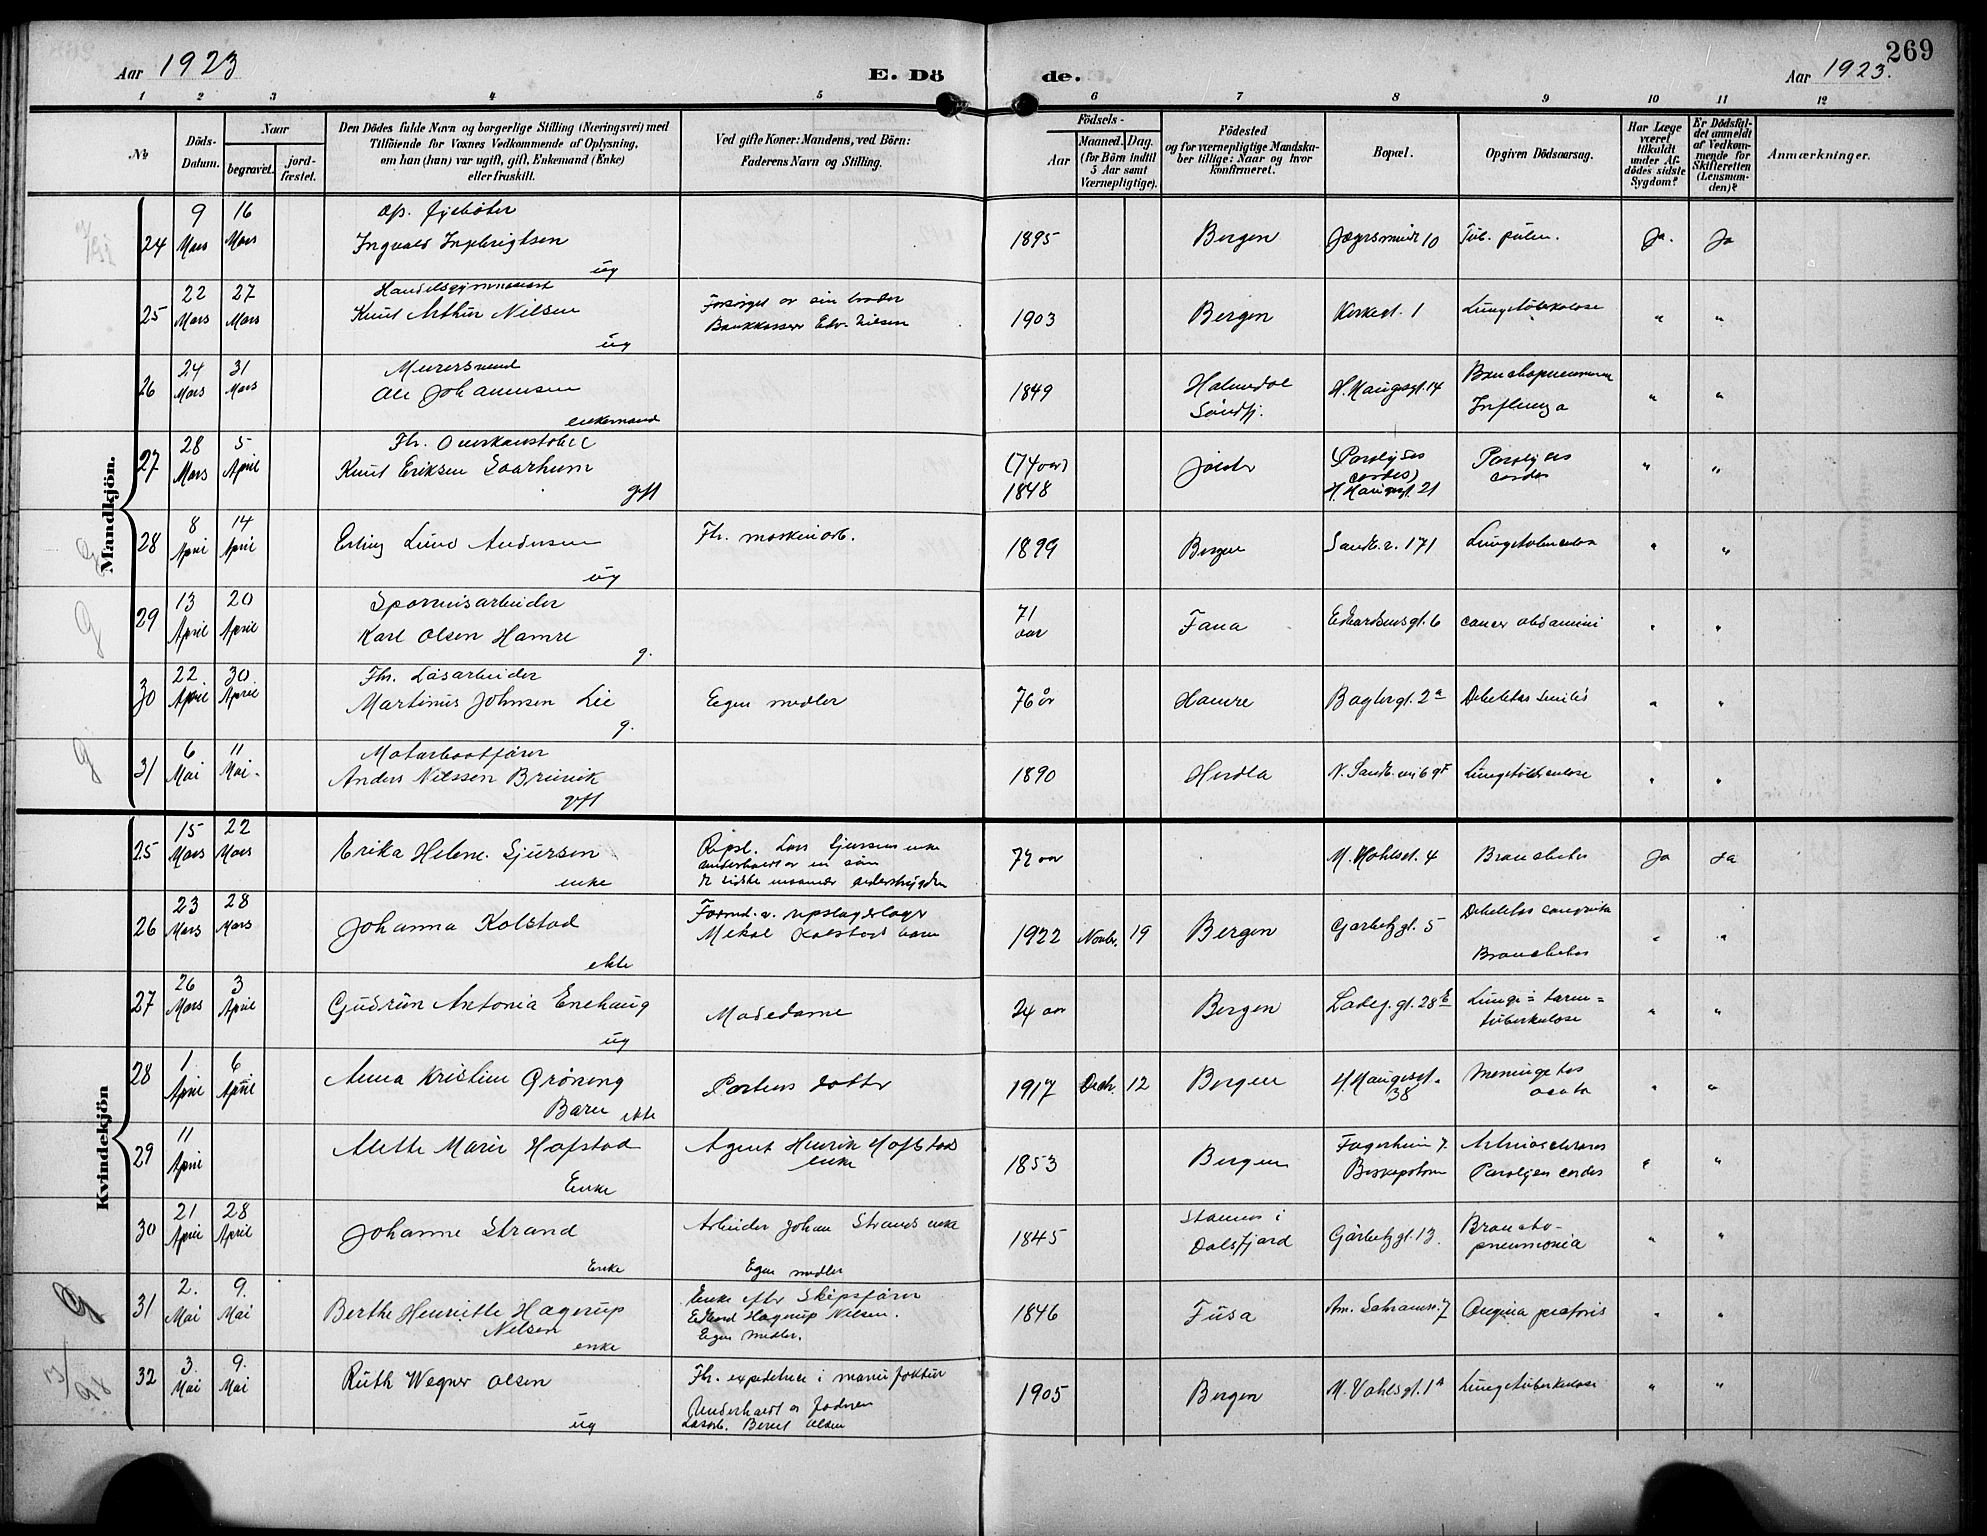 269
Aar 1923
E. Dö
de.
Aar 1923.
1 2 3 4 5 6 7 8 9 10 11 12
No
Döds-Datum.
Naar
begravet.
jord-fæstet.
Den Dödes fulde Navn og borgerlige Stilling (Næringsvei) med
Tilföiende for Voxnes Vedkommende af Oplysning,
om han (hun) var ugift, gift, Enkemand (Enke)
eller fraskilt.
Ved gifte Koner: Mandens, ved Börn:
Faderens Navn og Stilling.
Födsels-
Aar
Maaned. Dag.
(for Börn indtil
5 Aar samt
Værnepligtige).
Födested
og for værnepligtige Mandska-
ber tillige: Naar og hvor
konfirmeret.
Bopæl.
Opgiven Dödsaarsag.
Har Læge
været
tilkaldt
under Af-
dödes sidste
Sygdom?
Er Dödsfal-
det anmeldt
af Vedkom-
mende for
Skifteretten
(Lensman-
den)?
Anmærkninger.
Mandkjön.
24 9 Mars 16 Mars Ingvald ug 1895 Bergen 10 Ja. Ja
25 22 Mars 27 Mars Handelsgymnasiast
Knut Arthur Nilsen ug Forsörget av sin broder
Bankkasserer Edv. Nilsen 1903 Bergen Kirkegt. 1 Lungetuberkulose " "
26 24 Mars 31 Mars Murersvend
Ole Johannesen enkemand 1849 Holmedal
Söndfj. H. Haugesgt. 14 Bronchopneumonia
Influenza " "
27 28 Mars 5 April Fhv.
Knut Eriksen gift (74 aar)
1848 Jölster (Paralysis
cordis)
H. Haugesgt. 21 Paralysis
cordis " "
28 8 April 14 April Erling Lund Andersen ug Fhv. maskinarb. 1899 Bergen Sandv. v. 171 Lungetuberculose " "
29 13 April 20 April Sporveisarbeider
Karl Olsen Hamre g. 71
aar Fana Edvardsensgt. 6 cancer abdomini " "
30 22 April 30 April Fhv. Løsarbeider
Martinus Johnsen Lie g. Egne midler 76 år Hamre Baglergt. 2a Debilitas senilis " "
31 6 Mai 11 Mai. Motorbaatfører
Anders Nilssen gift 1890 Herdla N. Lungetuberculose " "
Kvindekjön
25 15 Mars 22 Mars Erika Helene Sjursen enke Lars Sjursens enke
72 aar M. Vahlsgt. 4 Bronchitis Ja Ja
26 23 Mars 28 Mars Johanna Kolstad ekte
Kolstads barn 1922 Novbr. 19 Bergen Garbitzgt. 5 Debilitas congenita
Bronchitis " "
27 26 Mars 3 April Gudrun Antonia Enehaug ug Modedame 24 aar Bergen Ladeg. gt. 28E Lunge= tarm=
tuberkulose " "
28 1 April 6 April Anna Kristine Gröning
Barn ekte datter 1917 Decbr. 12 Bergen H. Haugesgt.
38 Meningitis
acuta " "
29 11 April Alette Marie Hofstad
Enke Agent Henrik Hofstads
enke 1853 Bergen Fagerheim 7. Arteriosclerosis
Paralysis cordis " "
30 21 April 28 April Johanne Strand
Enke Arbeider Johan Strands enke
Egne midler 1845 Stamnes i
Dalsfjord Garbitzgt. 13. Broncho-
pneumonia " "
31 2. Mai 9. Mai Berthe Henriette Hagerup
Nilsen
enke Enke efter Skipsfører
Edvard Hagerup Nilsen.
Egne midler. 1846 Fusa Am. Schramsv. 7 Angina pectoris " "
32 3. Mai 9. Mai Ruth Wegner Olsen
ug Fhv. expeditrise i manufaktur
Underholdt av faderen
Løsarb. Bernt Olsen 1905 Bergen M. Vahlsgt. 1A Lungetuberkulose " "